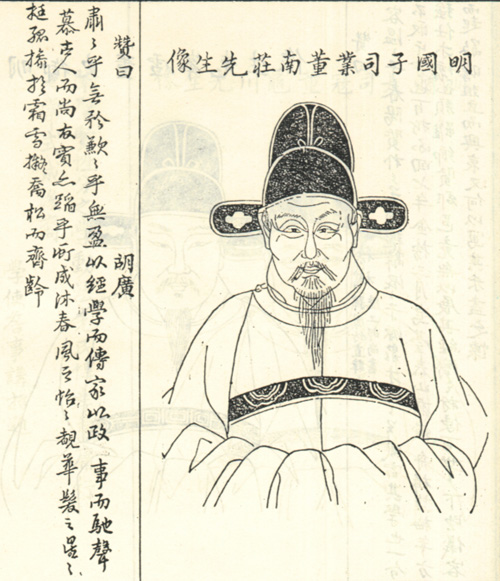 明國子司業董南莊先生像
贊曰 胡廣
肅〻乎無矜歉〻乎無盈以經學而傳家以政事而馳聲
慕古人而尚友實允蹈乎所成沐春風之怡〻覩華髮之星〻
挺孤操於霜雪擬喬松而齊齡